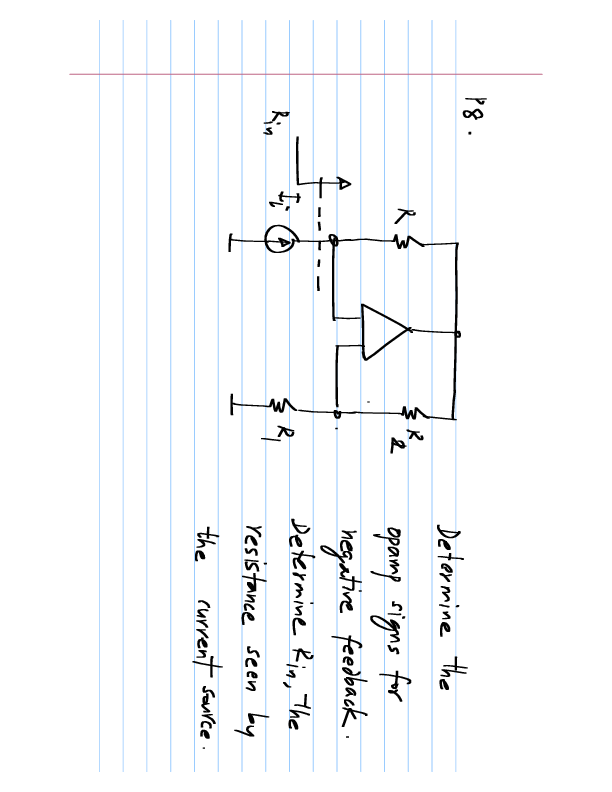 P8.
R
R2
Rin
Ii
R1
Determine the
opamp signs for
negative feedback.
Determine Rin, the
resistance seen by
the current source.